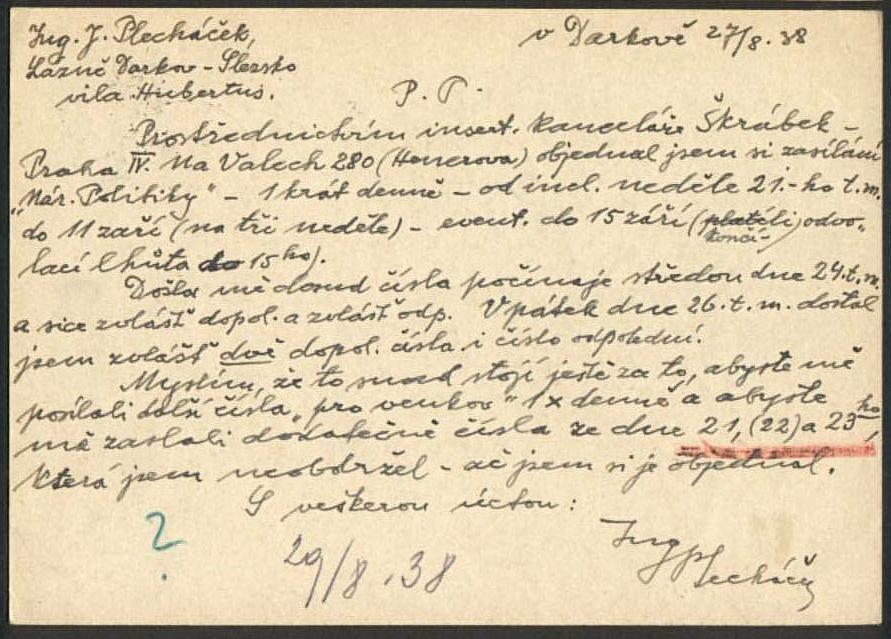 Ing. J. Plecháček,
Lázně Darkov - Slezsko
vila Hubertus.
v Darkově 27/8. 38
P. T.
Prostřednictvím insert. kanceláře Škrábek -
Praha IV. Na Valech 280 () objednal jsem si zasílání
"Nár. Politiky" - 1 krát denně - od incl. neděle 21.- ho t. m.
do 11 září (na tři neděle) - event. do 15 září (platíli odvo-
končí
lací lhůta do 15 ho).
Došla mě dosud čísla počínaje středou dne 24. t. m.
a sice zvlášť dopol. a zvlášť odp. V pátek dne 26. t. m. dostal
jsem zvlášť dvě dopol. čísla i číslo odpolední.
Myslím, že to snad stojí ještě za to, abyste mě
posílali další čísla "pro venkov" 1x denně a abyste
mě zaslali dodatečně čísla ze dne 21, (22) a 23 ho,
která jsem neobdržel - ač jsem si je objednal.
S veškerou úctou:
Ing Plecháček
?
29/8. 38